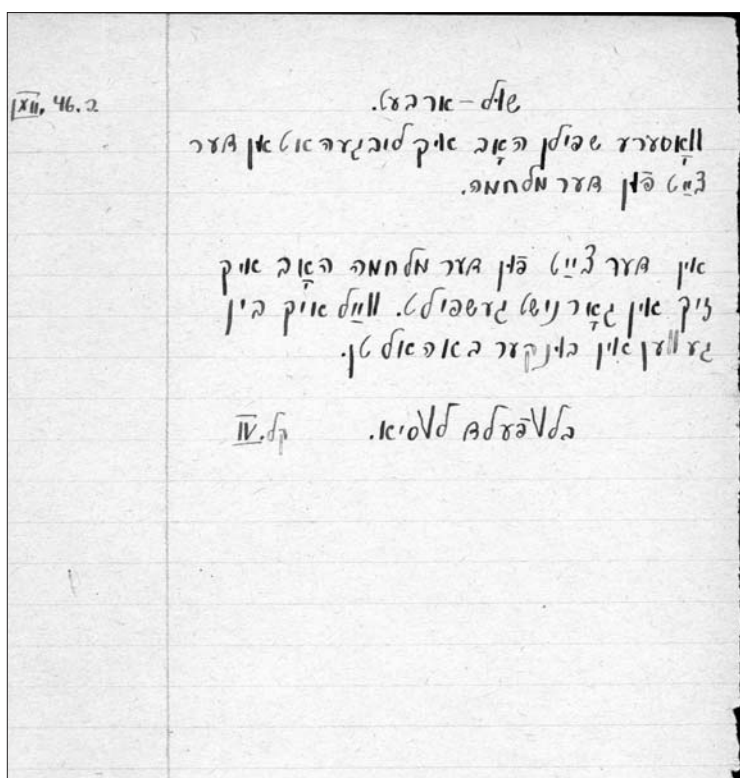 XII, 46.2
שול – ארבעט.
װאָסערע שפילן האָב איך ליב געהאט אן דער
צײַט פֿון דער מלחמה.
אין דער צײַט פֿון דער מלחמה האָב איך
זיך אין גאָר נישט געשפילט. װײַל איך בין
געװען אין בונקער באהאלטן.
קל. IV